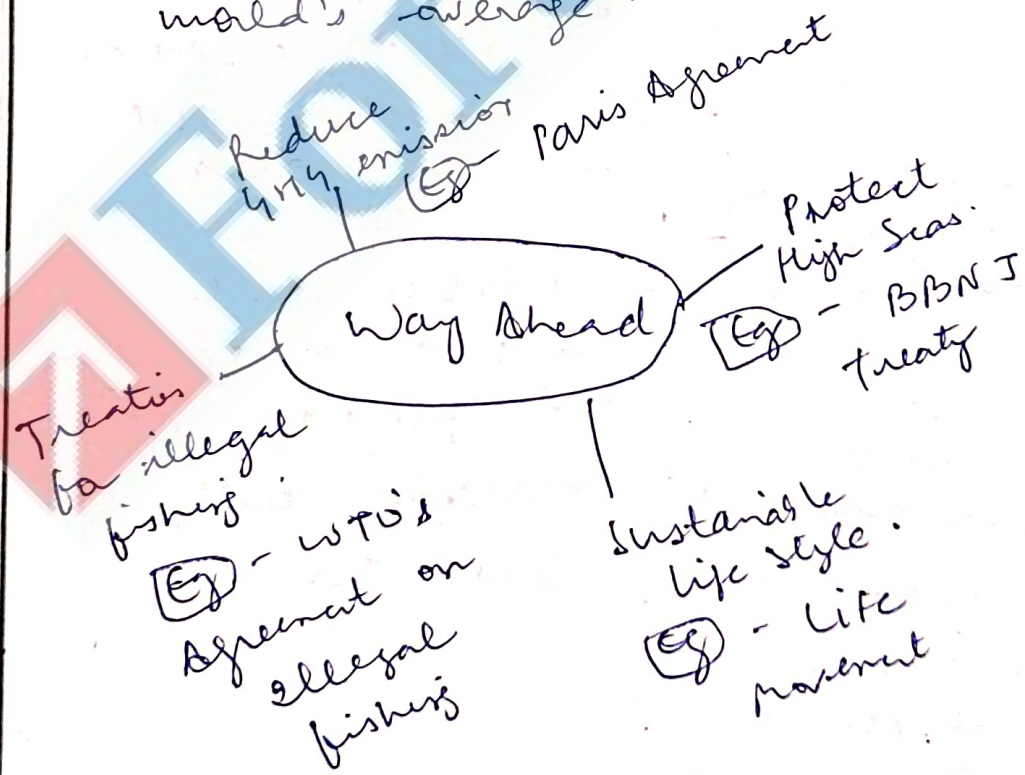 world's average
Reduce
GHG emission
Eg - Paris Agreement
Way Ahead
Protect
High Seas.
Eg - BBNJ
treaty
Treaties
for illegal
fishing.
Eg - WTO's
Agreement on
illegal
fishing
Sustainable
life style.
Eg - LiFE
movement
For